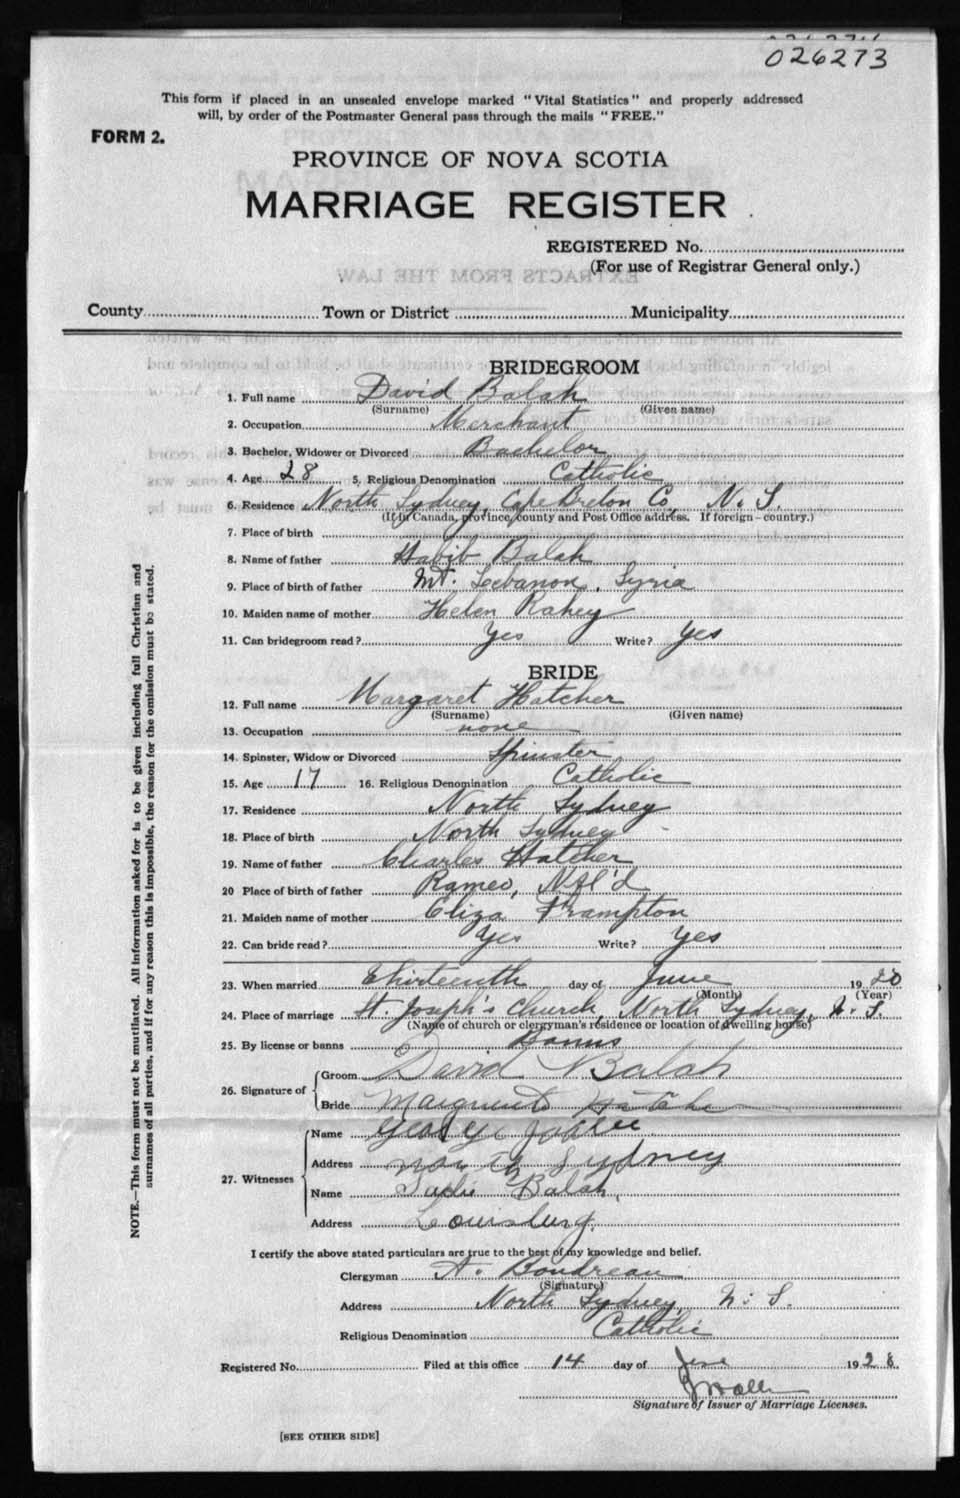 026273
This form if placed in an unsealed envelope marked "Vital Statistics" and properly addressed
will, by order of the Postmaster General pass through the mails "FREE."
FORM 2.
PROVINCE OF NOVA SCOTIA
MARRIAGE REGISTER
REGISTERED No.
(For use of Registrar General only.)
County Town or District Municipality
BRIDEGROOM
1. Full name David Balah
(Surname) (Given name)
2. Occupation Merchant
3. Bachelor, Widower or Divorced Bachelor
4. Age 28 5. Religious Denomination Catholic
6. Residence North Sydney, Cape Breton Co, N. S.
(If in Canada, province, county and Post Office address. If foreign - country.)
7. Place of birth
8. Name of father Habib Balah
9. Place of birth of father Mt. Leebanon, Syria
10. Maiden name of mother Helen Rahey
11. Can bridegroom read? Yes Write? Yes
BRIDE
12. Full name Margaret Hatcher
(Surname) (Given name)
13. Occupation none
14. Spinster, Widow or Divorced Spinster
15. Age 17 16. Religious Denomination Catholic
17. Residence North Sydney
18. Place of birth North Sydney
19. Name of father Charles Hatcher
20 Place of birth of father Rameo, Nfl'd
21. Maiden name of mother Eliza Frampton
22. Can bride read? Yes Write? Yes
23. When married Thirteenth day of June 19
(Month) (Year)
24. Place of marriage St. Joseph's Church, North Sydney, N. S.
(Name of church or clergyman's residence or location of dwelling house)
25. By license or banns Banns
26. Signature of Groom David Balah
Bride Hatche
27. Witnesses Name George
Address North Sydney
Name Sadie Balah
Address Louisburg.
I certify the above stated particulars are true to the best of my knowledge and belief.
Clergyman A. Boudreau
(Signature)
Address North Sydney, N. S.
Religious Denomination Catholic
Registered No. Filed at this office 14 day of June 1928
Signature of Issuer of Marriage Licenses.
[SEE OTHER SIDE]
NOTE.—This form must not be mutilated. All information asked for is to be given including full Christian and
surnames of all parties, and if for any reason this is impossible, the reason for the omission must be stated.